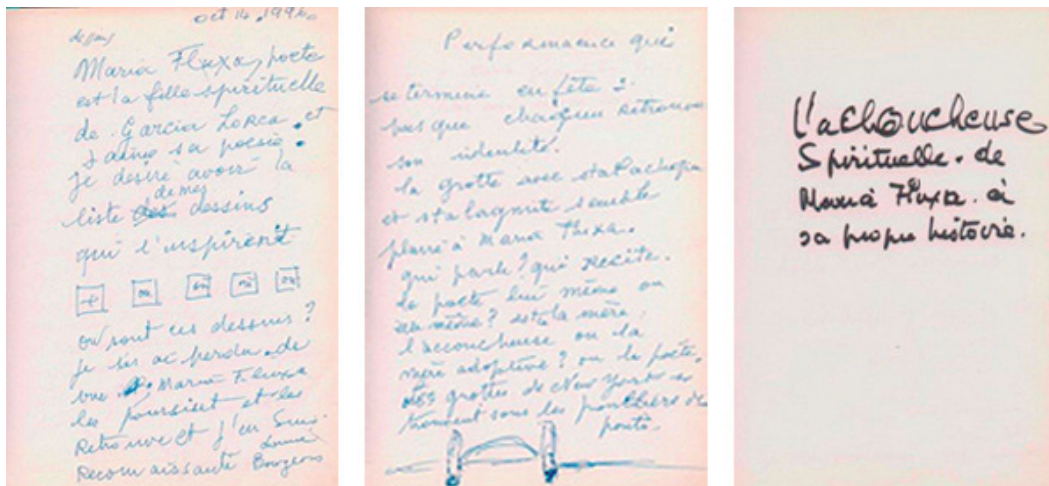 oct 14, 1994
dessins
Maria Fluxa, poete
est la fille spirituelle
de Garcia Lorca. et
j'aime sa poesie.
je desire avoir la
de mes
liste des dessins
qui l'inspirent
où où où où
où sont ces dessins?
je les ai perdu. de
vue. Maria Fluxa
les poursuit et les
Retrouve et j'en suis
Reconnaissante Louise Bourgeois
Performance qui
se termine en fête
pas que chaqun retrouve
son identité.
la grotte avec
et stalagmite semble
plaire à Maria Fluxa.
qui parle? qui recite.
le poete lui même ou
elle même? est la mère,
l'accoucheuse ou la
mère adoptive? ou le poete.
des grottes de New York se
trouvent sous les de
ponts.
L'acHoucheuse
Spirituelle. de
Maria Fluxa. à
sa propre histoire.